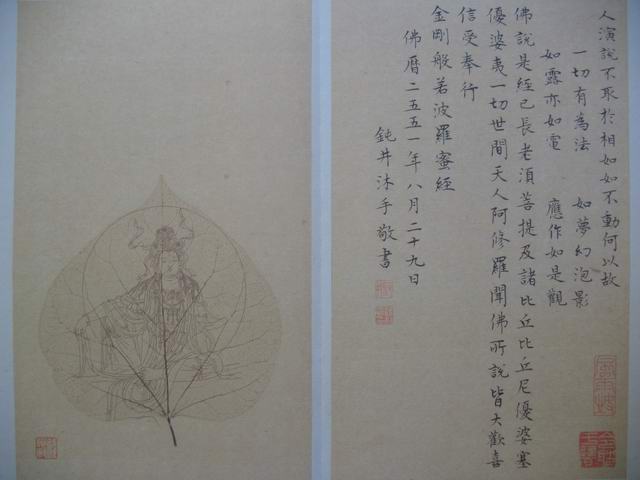 人演說不取於相如如不動何以故
一切有為法　如夢幻泡影
如露亦如電　應作如是觀
佛說是經已長老須菩提及諸比丘比丘尼優婆塞
優婆夷一切世間天人阿修羅聞佛所說皆大歡喜
信受奉行
金剛般若波羅蜜經
佛曆二五五一年八月二十九日
鈍井沐手敬書